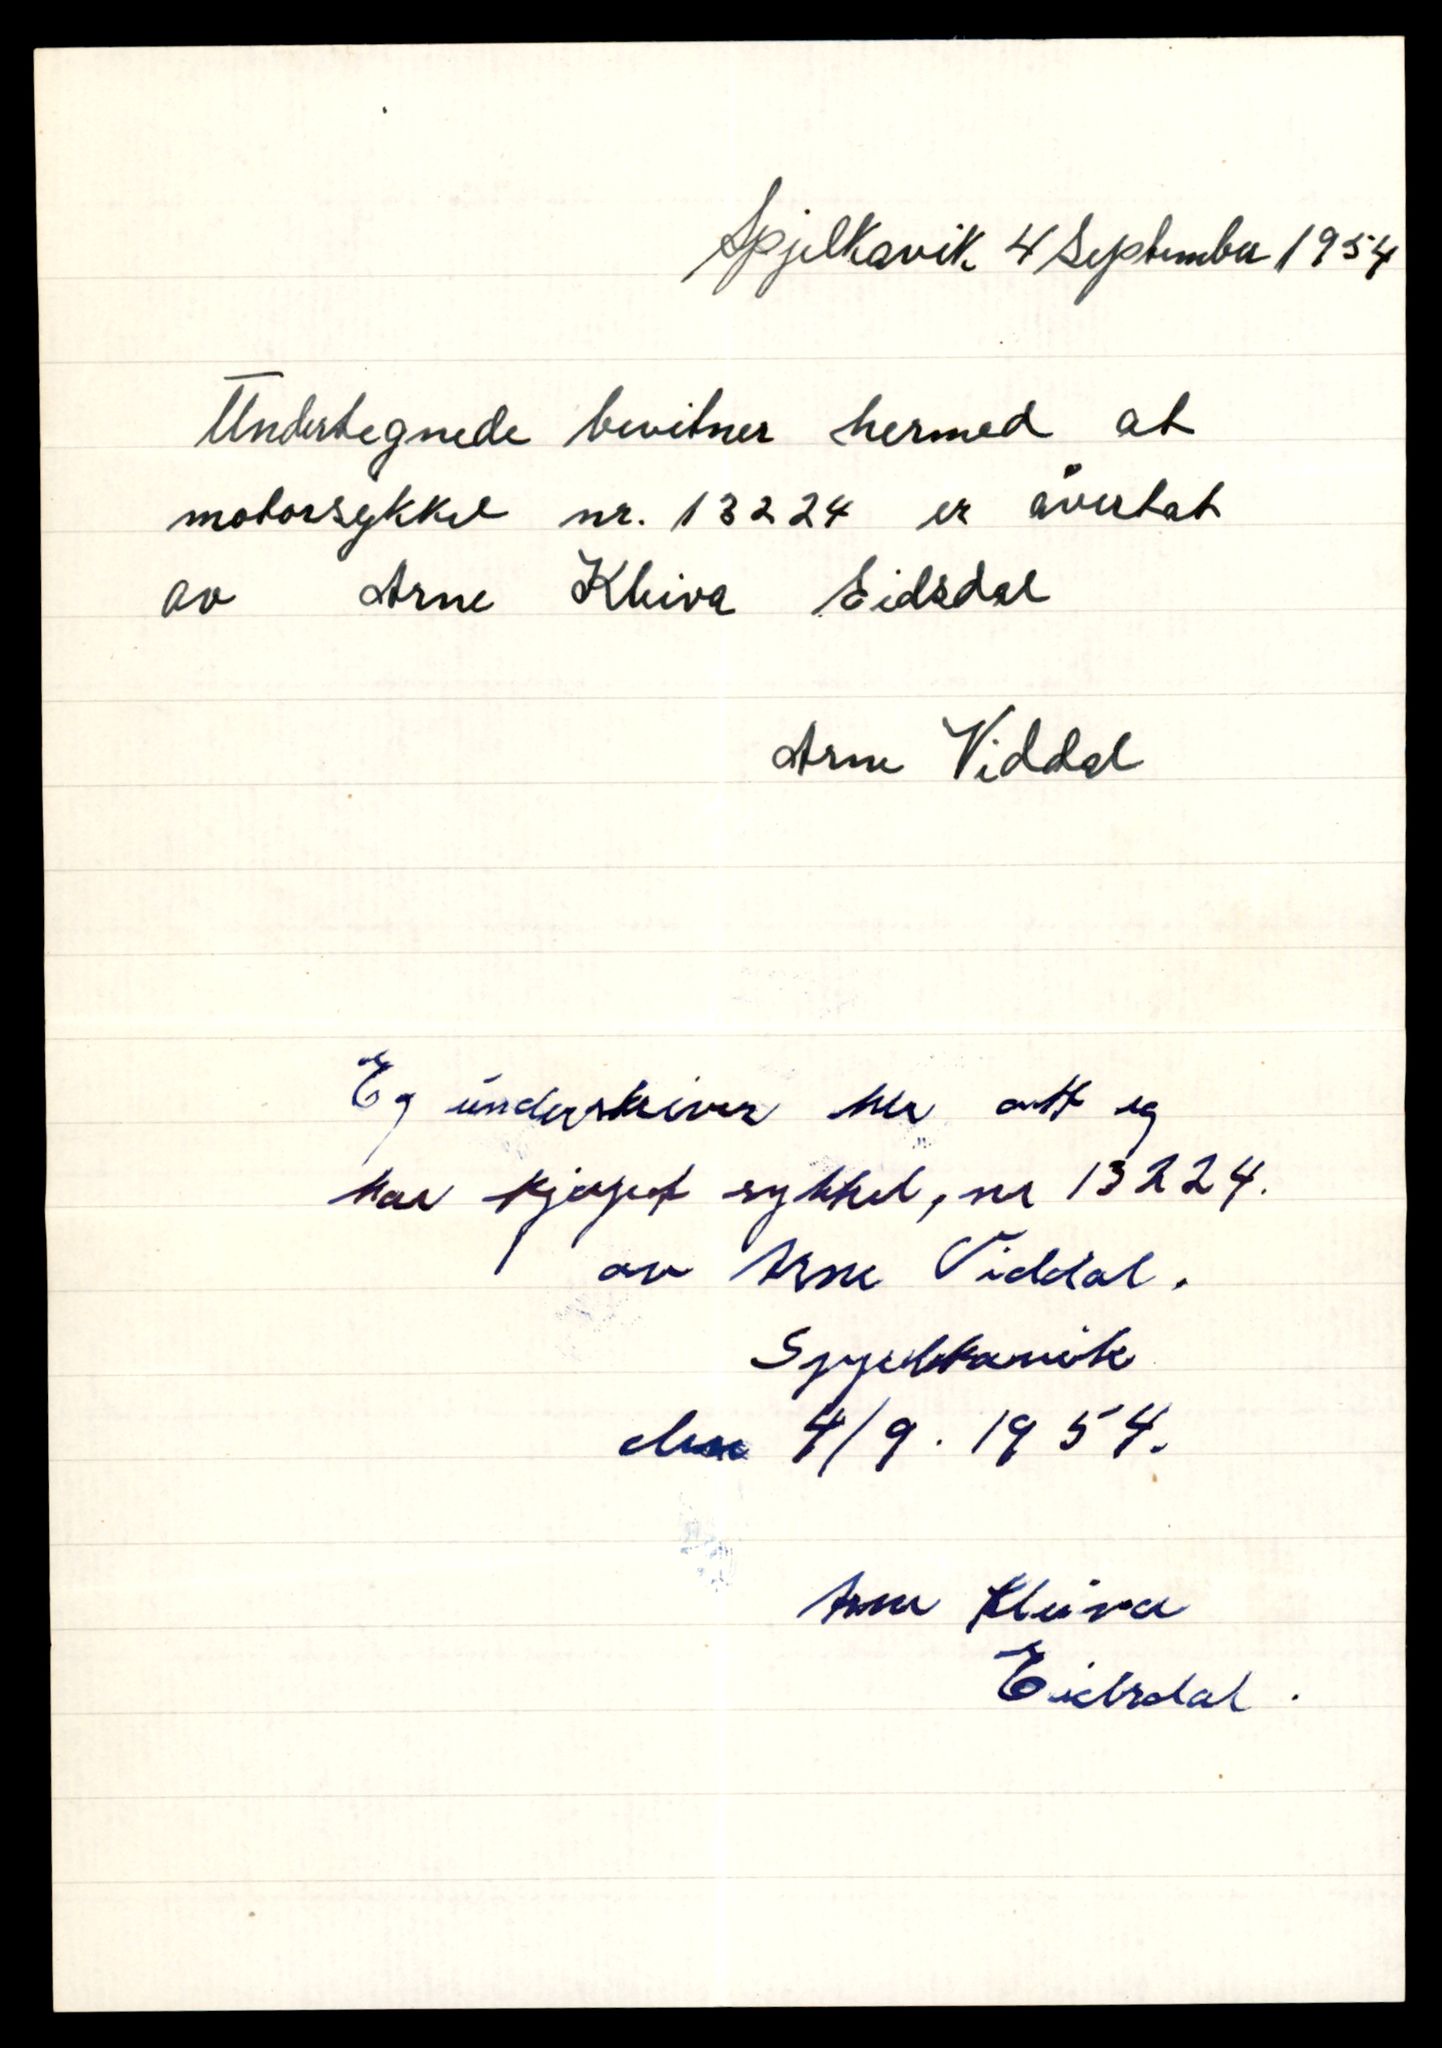 Spjelkavik 4 September 1954
Undertegnede bevitner hermed at
motorsykkel nr. 13224 er åvertat
av Arne Kleiva Eidsdal
Arne Viddal
Eg underskiver her att eg
har kjøpet sykkel, nr 13224.
av Arne Viddal.
Spjelkavik
den 4/9. 1954.
Arne Kleiva
Eidsdal.